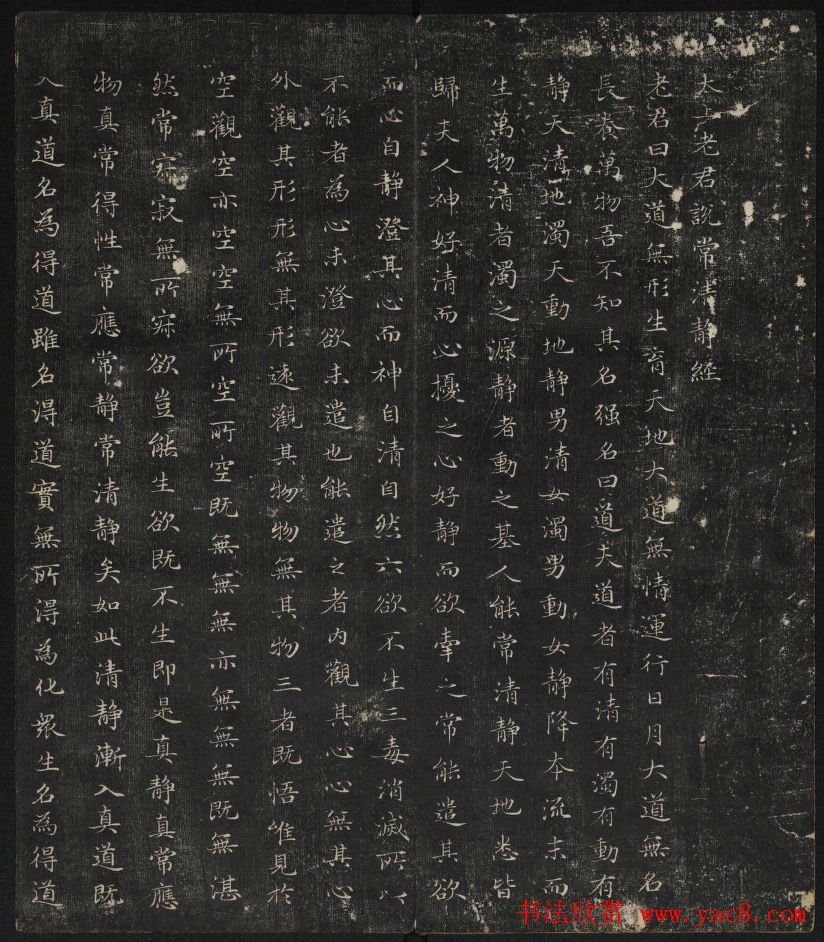 太上老君說常清静經
老君曰大道無形生育天地大道無情運行日月大道無名
長養萬物吾不知其名强名曰道夫道者有清有濁有動有
静天清地濁天動地静男清女濁男動女静降本流末而
生萬物清者濁之源静者動之基人能常清静天地悉皆
歸夫人神好清而心擾之心好静而欲牽之常能遣其欲
而心自静澄其心而神自清自然六欲不生三毒消滅所以
不能者為心未澄欲未遣也能遣之者内觀其心心無其心
外觀其形形無其形遠觀其物物無其物三者既悟唯見於
空觀空亦空空無所空所空既無無無亦無無無既無湛
然常寂寂無所寂欲豈能生欲既不生即是真静真常應
物真常得性常應常静常清静矣如此清静漸入真道既
入真道名為得道雖名得道實無所得為化衆生名為得道
书法欣赏 www.yac8.com